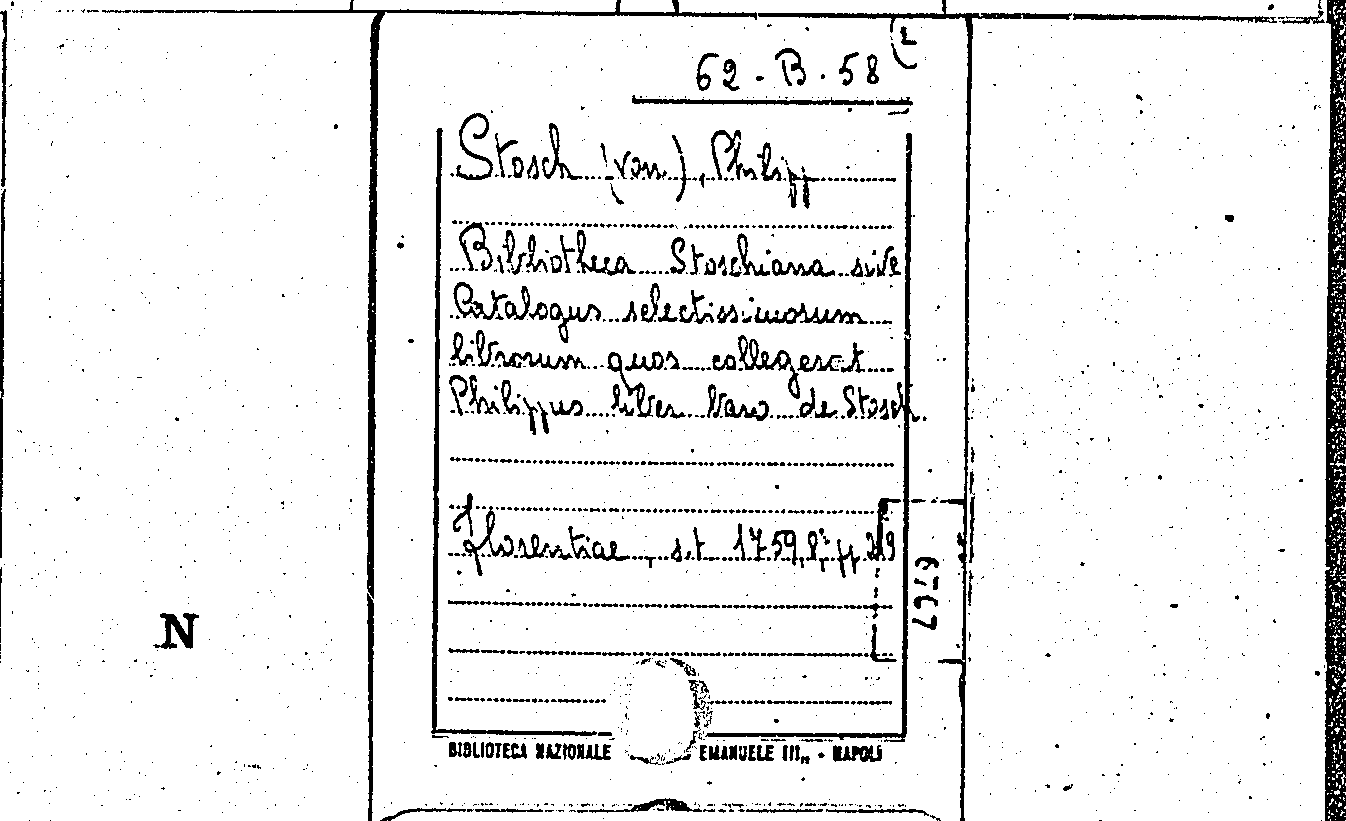 L
62 - B - 58
Stosch (von), Philipp
Bibliotheca Stoschiana sive
Catalogus selectissimorum
librorum quos collegerat
Philippus liber baro de Stosch.
Florentiae, s.t 1759, 8°, pp
N
BIBLIOTECA NAZIONALE EMANUELE III,, - NAPOLI